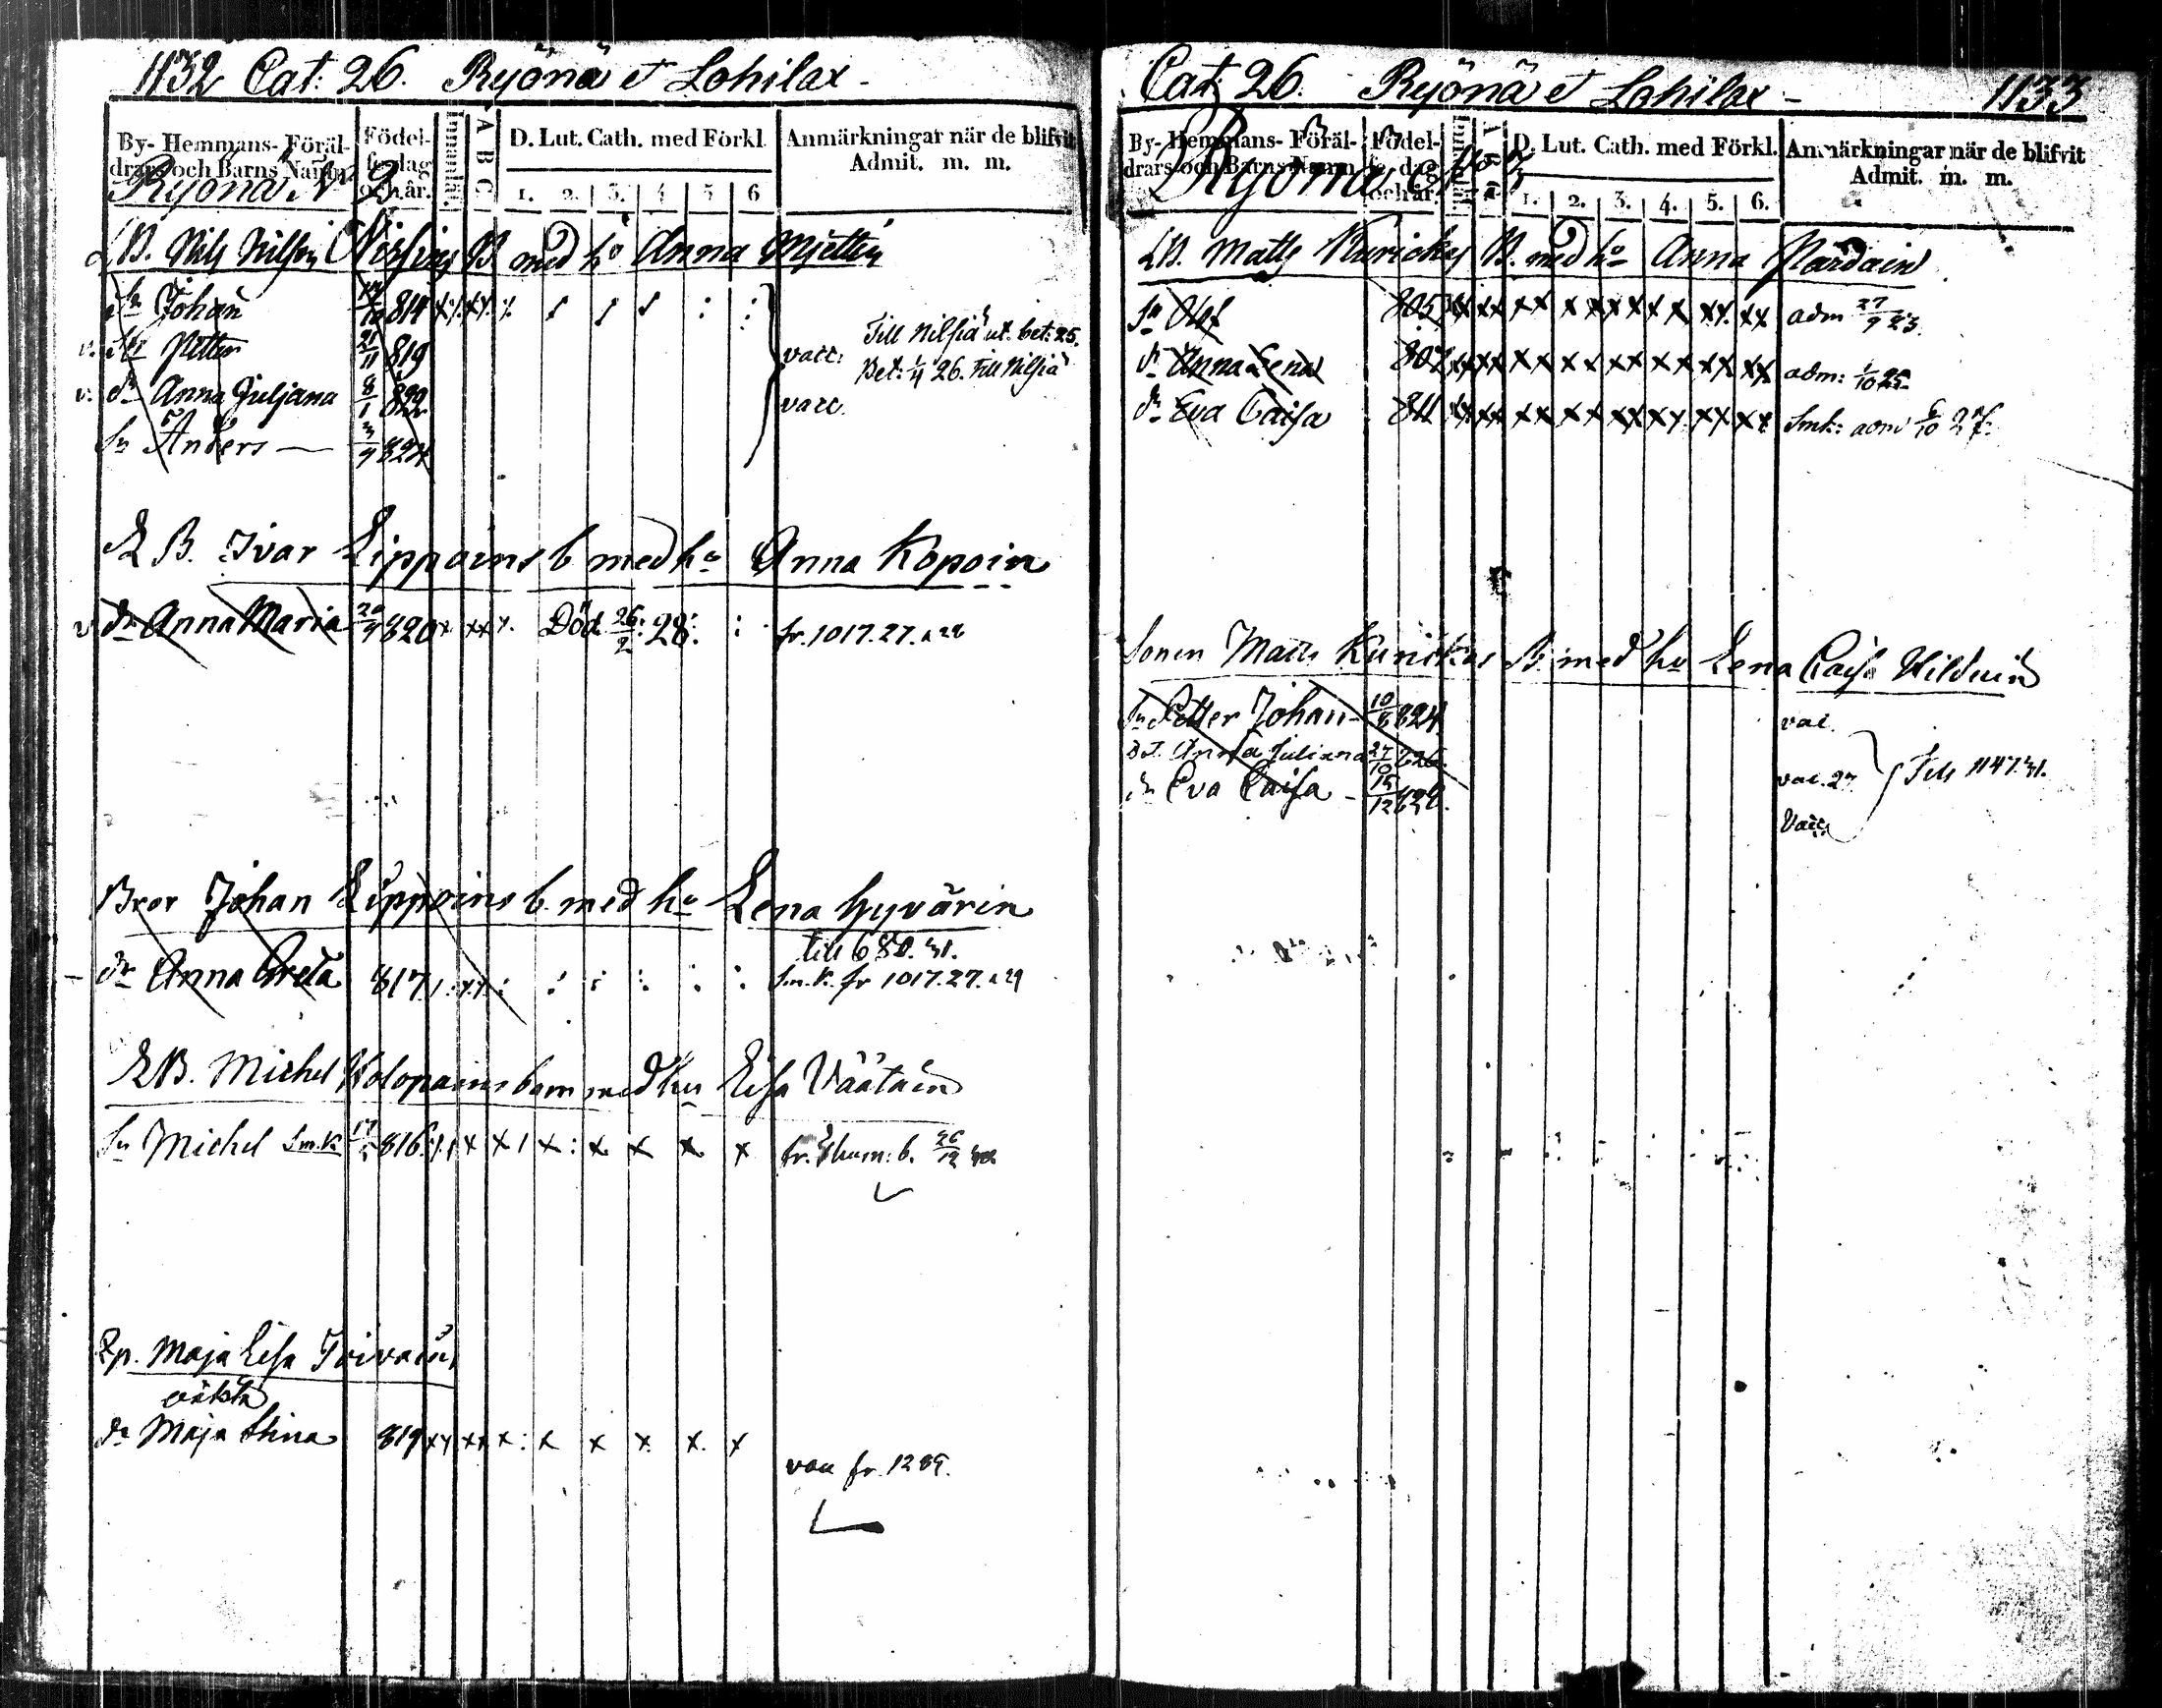 1132 Cat: 26. Ryönä et Lohilax
By- Hemmans- Föräl-
drars och Barns Namn.
Födel-
se dag
och år.
Innanläs.
A B C
D. Lut. Cath. med Förkl.
1. 2. 3. 4 5 6
Anmärkningar när de blifvit
Admit. m. m.
Ryönä N 2.
LB. Nils Nilsson B. med ho Anna Miettin
Sn Johan 814
v. Sn Petter 21/11 819 vacc.
Till Nilsiä ut. bet: 25.
Bet: 1/4 26. Till Nilsiä
v. dr Anna Juliana 8/1 822 vacc.
Sn Anders 3/9 824
LB. Ivar Lippoins b. med ho Anna Kopoin
v dr Anna Maria 20/9 820 x xx Död 26/2 28. fr. 1017.27. a 28
Bror Johan Lippoins b. med ho Lena Hyvärin
till 680. 31.
dr Anna Greta 817 Sm.k. fr 1017.27. a 29
LB. Michel Kolopains barn med hu Lisa Väätäin
Sn Michel Sm.k 816 x x x x x x x
Sp. Maja Lisa Toivain
oäkta
dr Maja Stina 819 xx xx x : x x x. x. x
vacc fr. 1289.
Cat: 26 Ryönä et Lohilax 1133
By- Hemmans- Föräl-
drars och Barns Namn
Födel-
se dag
och år.
D. Lut. Cath. med Förkl.
1. 2. 3. 4. 5. 6.
Anmärkningar när de blifvit
Admit. m. m.
Ryönä N 3
LB. Matts Kurickas B. med ho Anna Pardain
Sn Olof 805 xx xx xx x xx xx xx xx adm 27/9 23.
dr Anna Lena 807 xx xx xx xx xx xx xx xx adm: 1/10 25
dr Eva Caisa 811 xx xx xx xx xx xx xx xx Smk: adm 6/10 27.
Sonen Matts Kurickas B. med hu Lena Caisa
Sn Petter Johan 10/8 824. vac.
Dr. Anna Juliana 27/10 826. vac. 27
Till 1147. 31.
dr Eva Caisa 15/12 828. Vacc